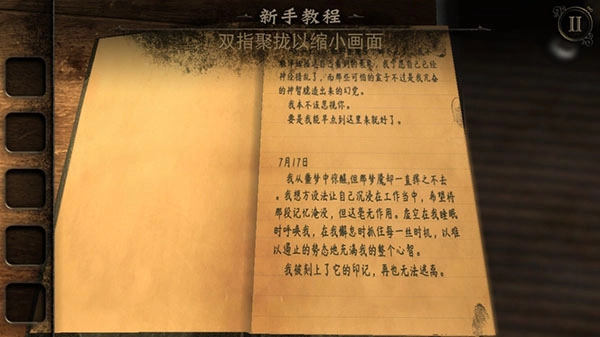 新手教程
双指聚拢以缩小画面
神经错乱了,而那些可怕的案子不过是我亢奋
的神智臆造出来的幻觉。
我本不该忽视你。
要是我能早点到这里来就好了。
7月17日
我从噩梦中惊醒,但那梦魇却一直挥之不去
。我想方设法让自己沉浸在工作当中,希望将
那段记忆淹没,但这毫无作用。虚空在我睡眠
时呼唤我,在我懈怠时抓住每一丝时机,以难
以遏止的势态地充满我的整个心智。
我被刻上了它的印记,再也无法逃离。